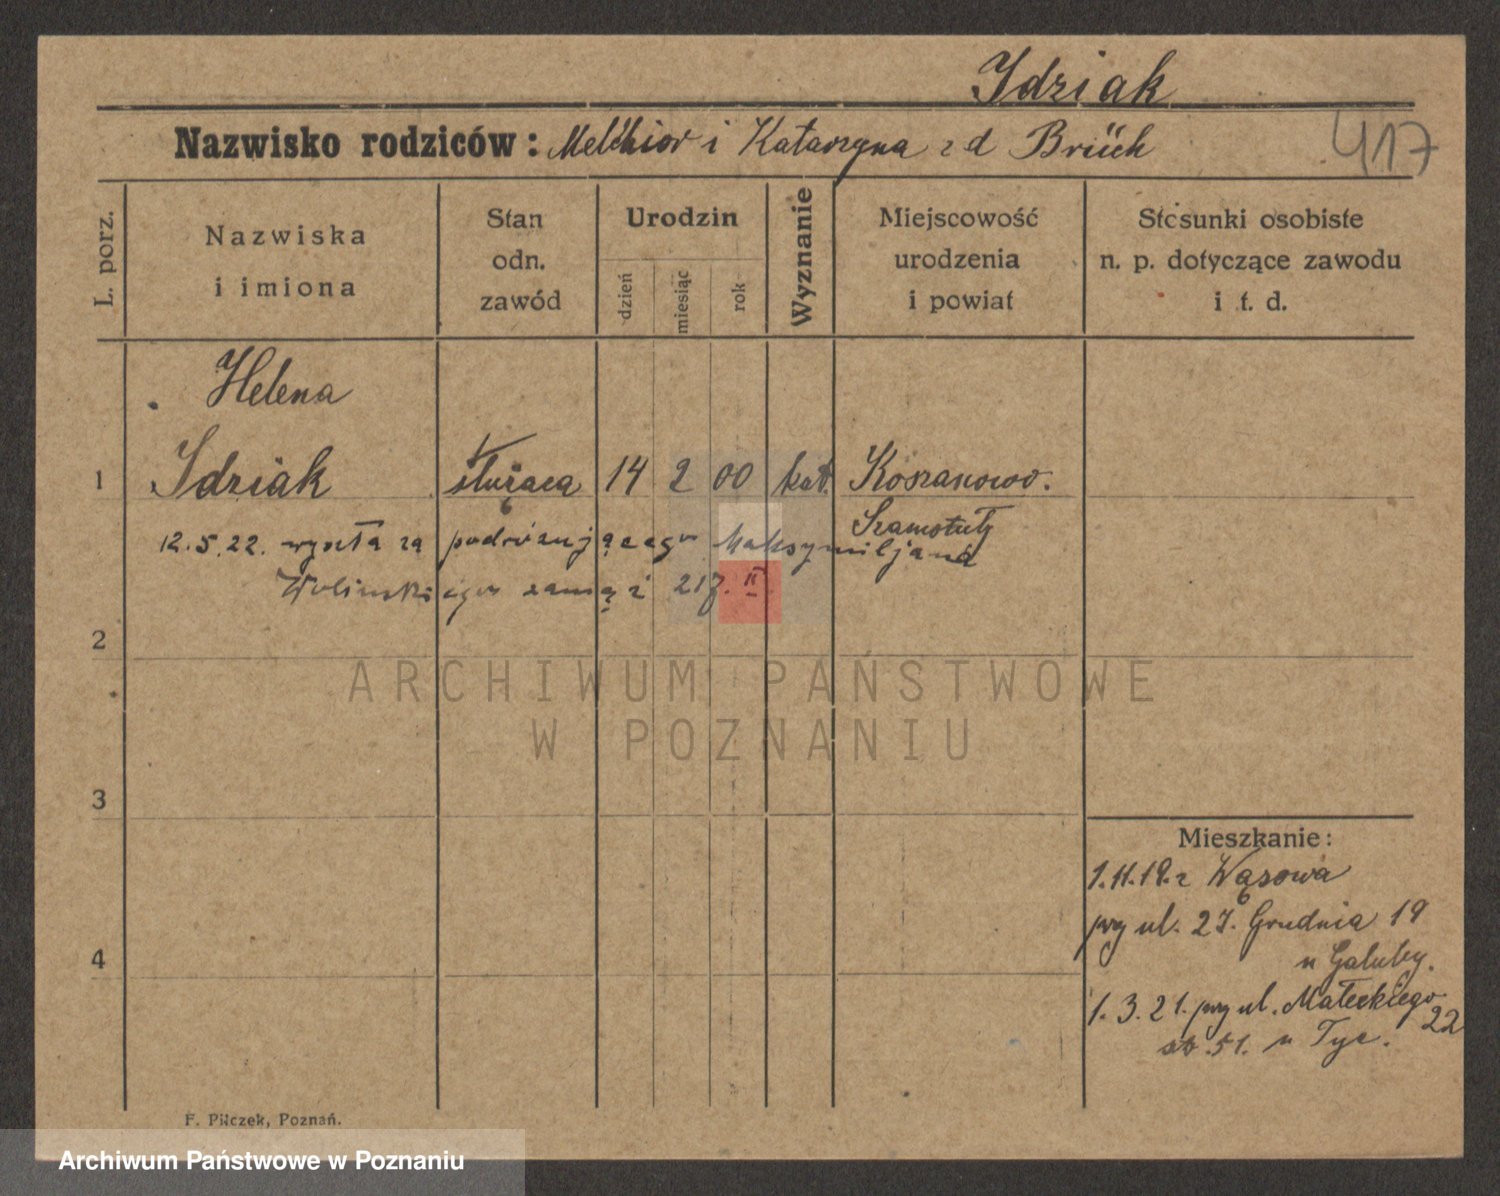 Idziak
Nazwisko rodziców: Melchior i Katarzyna z d Brüch
417
L. porz.
Nazwiska
i imiona
Stan
odn.
zawód
Urodzin
dzień
miesiąc
rok
Wyznanie
Miejscowość
urodzenia
i powiat
Stosunki osobiste
n. p. dotyczące zawodu
i t. d.
Helena
1 Idziak służąca 14 2 00 kat. Koszanowo.
Szamotuły
12.5.22. wyszła za podróżującego Maksymiljana
Wolińskiego zamąż 217. II
2
ARCHIWUM PAŃSTWOWE
W POZNANIU
3
Mieszkanie:
1.11.19. z Wąsowa
przy ul. 27. Grudnia 19
u Gałuby.
4
1.3.21. przy ul. Małeckiego 22
51. u Tyc.
F. Pilczek, Poznań.
Archiwum Państwowe w Poznaniu